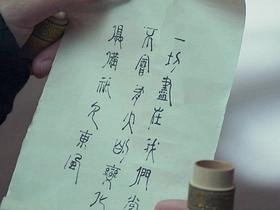 一切盡在我們掌
不會有大的變化
俱備祇欠東風